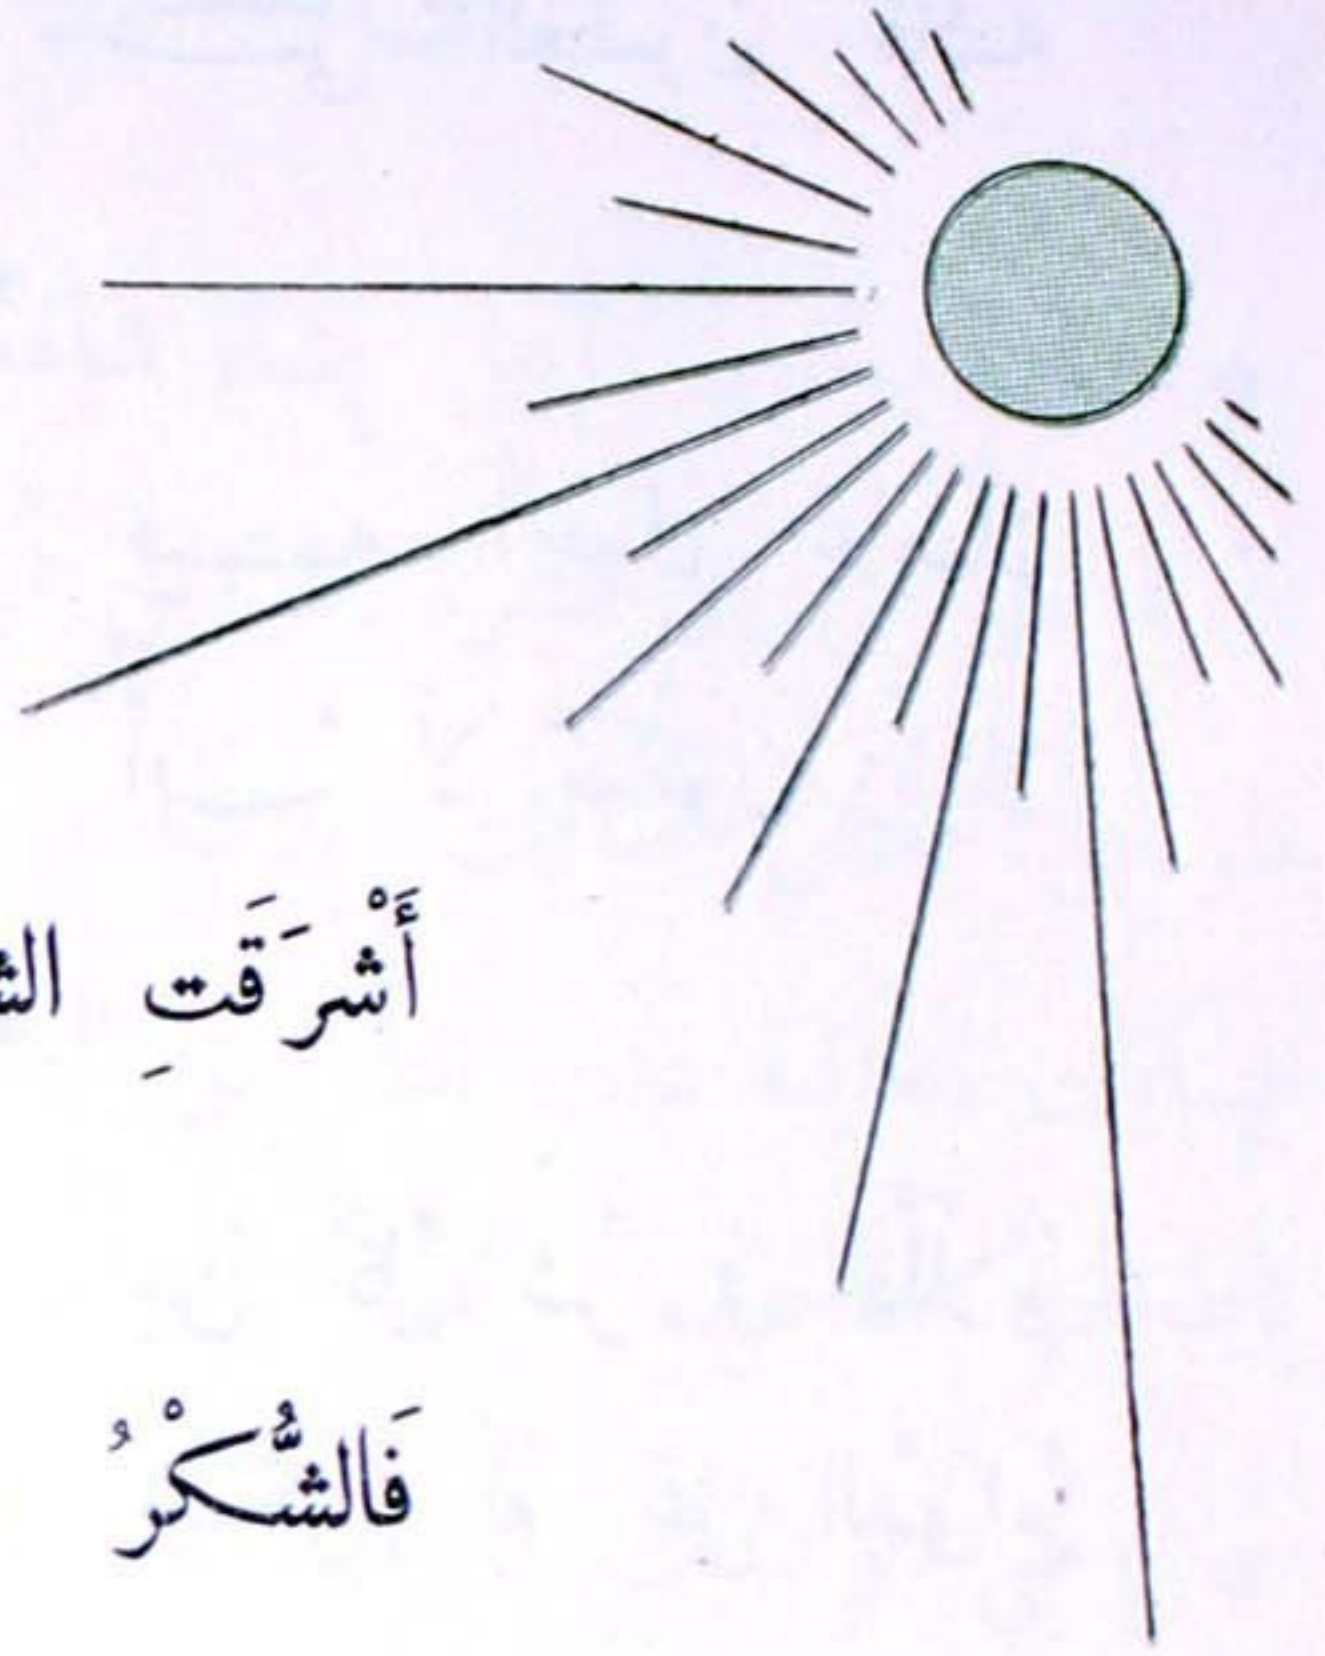 أَشْرَقَتِ
فَالشُّكْرُ